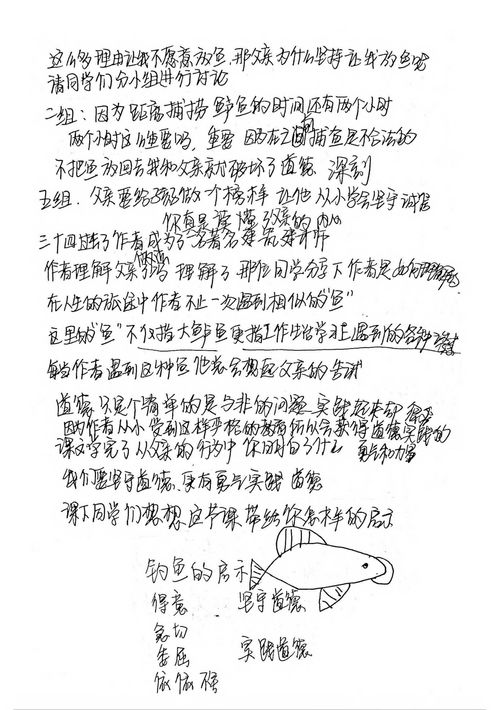 这么多理由让我不愿意放鱼,那父亲为什么坚持让我放鱼呢
请同学们分小组进行讨论
二组：因为距离捕捞鲈鱼的时间还有两个小时
两个小时这么重要吗，重要 因为在之前捕鱼是不合法的
不把鱼放回去我和父亲就破坏了道德 深刻
五组．父亲要给孩子做一个榜样 让他从小学会坚守诚信
你真是读懂了父亲的内心
三十四过去了作者成为了一名著名建筑师
作者理解父亲了吗 理解了 那位同学分享下作者是如何理解的
在人生的旅途中作者不止一次遇到相似的"鱼"
这里的"鱼"不仅指大鲈鱼更指工作生活学习上遇到的各种
每当作者遇到这种鱼他总会想起父亲的告诫
道德只是个简单的是与非的问题 实践起来却很难
因为作者从小受到这样严格的教育所以会获得道德实践的
勇气和力量
课文学完了从父亲的行为中你明白了什么
我们要坚守道德、更有勇气实践道德
课下同学们想想这节课带给你怎样的启示
钓鱼的启示
得意 坚守道德
急切
委屈 实践道德
依依不舍